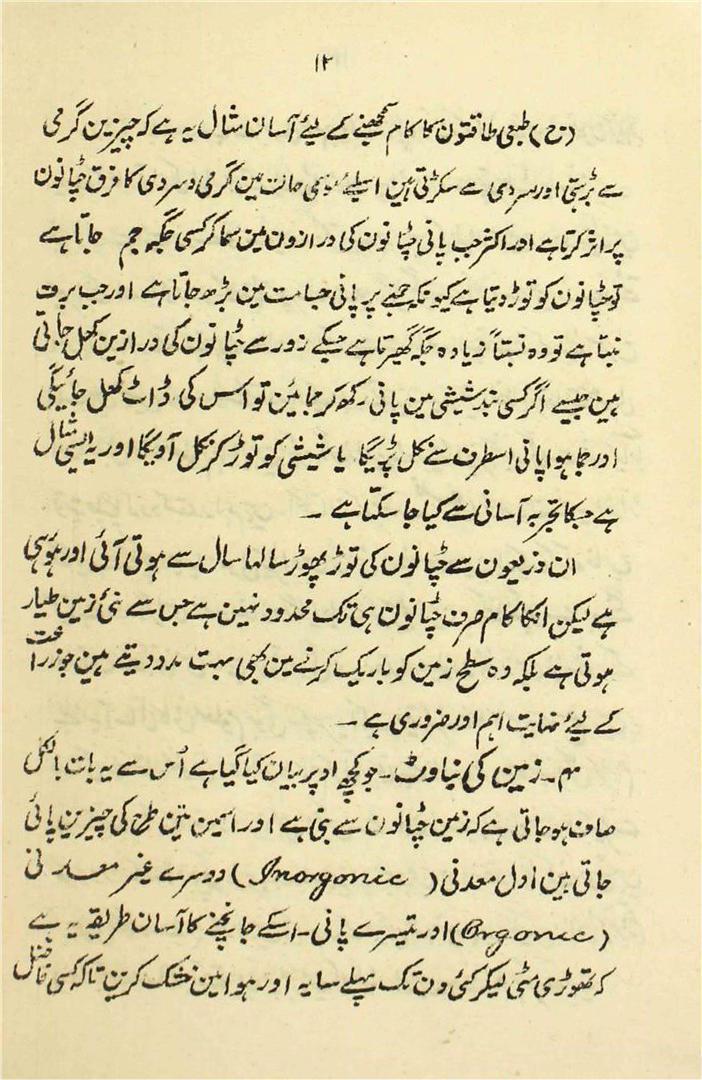 ۱۲
(ج) طبعی طاقتون کا کام سمجھنے کے لیٔے آسان مثال یہ ہے کہ چیزین گرمی
سے بڑہتی اور سردی سے سکڑتی ہین اسلیٔے موسمی حالت مین گرمی و سردی کا فرق چٹانون
پر اثر کرتا ہے اور اکثر جب پانی چٹانون کی درازون مین سما کر کسی جگہ جم جاتا ہے
تو چٹانون کو توڑ دیتا ہے کیونکہ جمنے پر پانی جسامت مین بڑھ جاتا ہے اور جب برف
بنتا ہے تو وہ نسبتاً زیادہ جگہ گھیرتا ہے جسکے زور سے چٹانون کی درازین کھل جاتی
ہین جیسے اگر کسی بند شیشی مین پانی رکھ کر جمائین تو اس کی ڈاٹ کھل جائیگی
اور جما ہوا پانی اسطرف سے نکل پڑیگا یا شیشی کو توڑ کر نکل آویگا اور یہ ایسی مثال
ہے جسکا تجربہ آسانی سے کیا جا سکتا ہے ۔
ان ذریعون سے چٹانون کی توڑ پھوڑ سالہا سال سے ہوتی آئی اور ہو رہی
ہے لیکن انکا کام صرف چٹانون ہی تک محدود نہین ہے جس سے نئی زمین طیار
ہوتی ہے بلکہ وہ سطح زمین کو باریک کرنے مین بھی بہت مدد دیتے ہین جو زراعت
کے لیٔے نہایت اہم اور ضروری ہے ۔
۳ ۔ زمین کی بناوٹ ۔ جو کچھ اوپر بیان کیا گیا ہے اُس سے یہ بات بالکل
صاف ہو جاتی ہے کہ زمین چٹانون سے بنی ہے اور اسمین تین طرح کی چیزین پائی
جاتی ہین اول معدنی (Inorgonic) دوسرے غیر معدنی
(Orgonic) اور تیسرے پانی ۔ اسکے جانچنے کا آسان طریقہ یہ ہے
کہ تھوڑی مٹی لیکر کئی دن تک پہلے سایہ اور ہوا مین خشک کرین تاکہ کسی فاضل